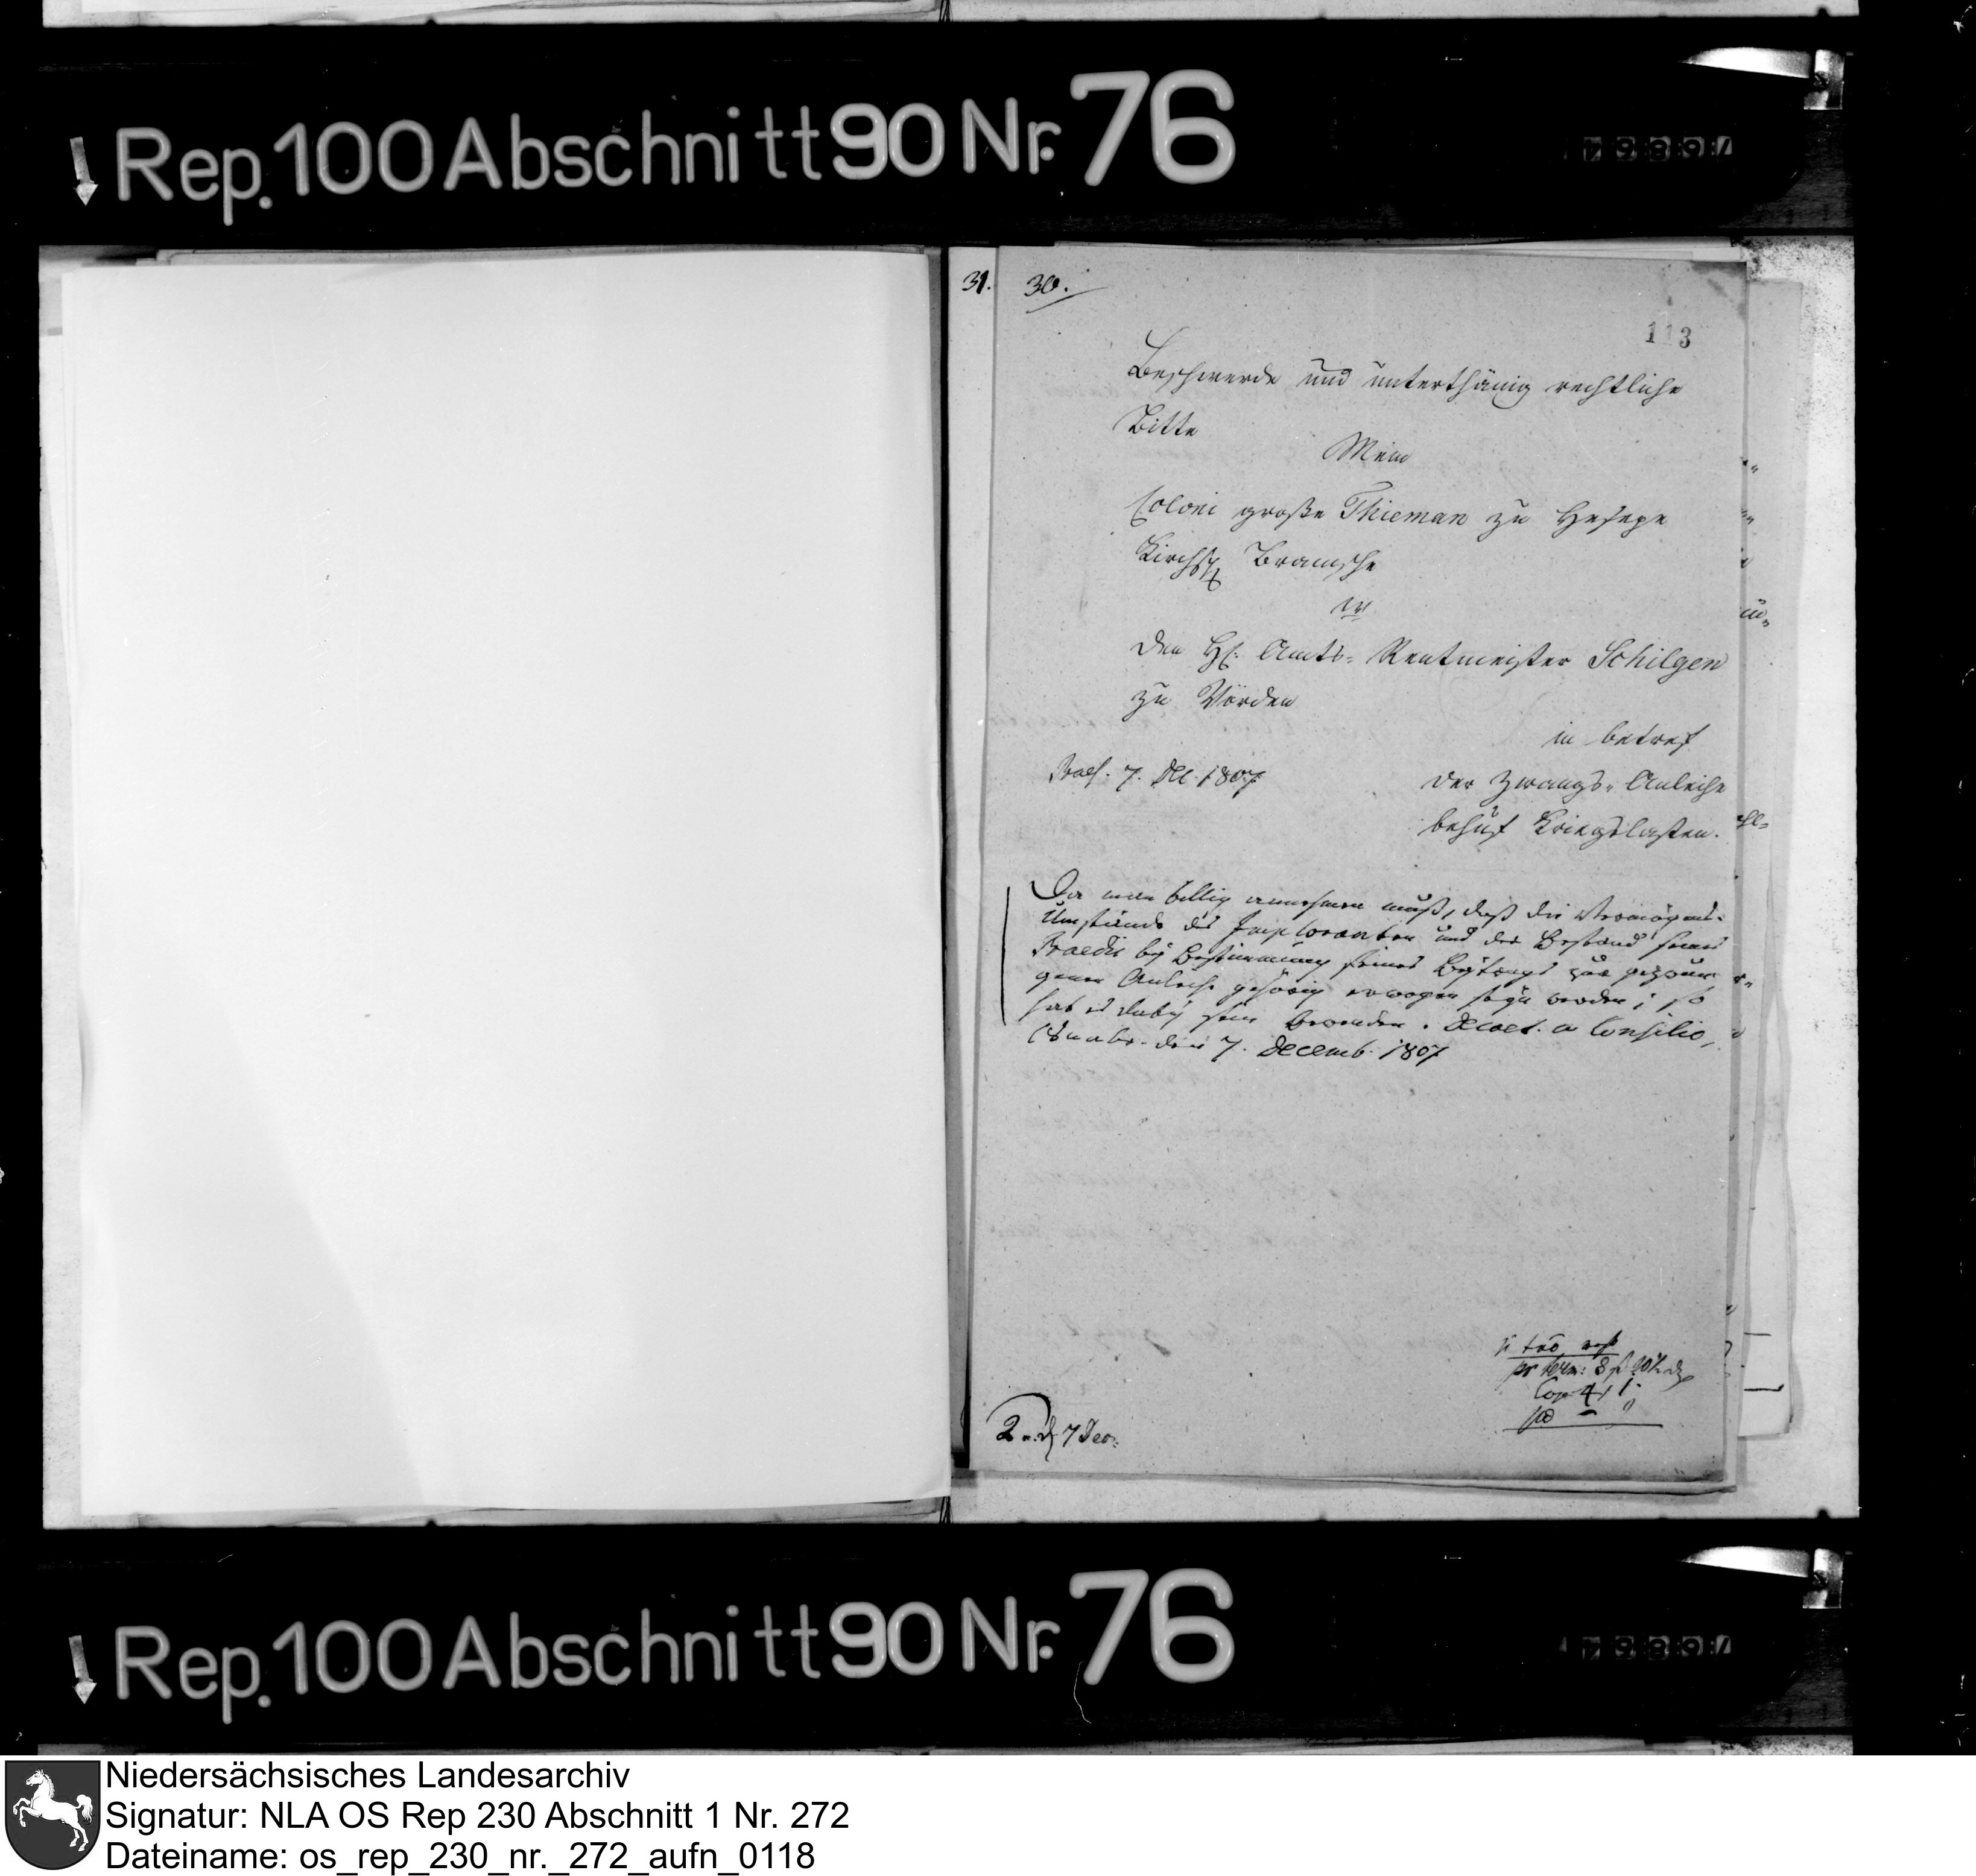 Rep. 100 Abschnitt 90 Nr. 76
31. 30.
113
Beschwerde und unterthänig rechtliche
Bitte
Mein
Coloni große Thieman zu Hesepe
Kirchsp Bramsche
den H. Amts-Rentmeister Schilgen
zu Vörden
in betref
Praes. 7. Dec. 1807
der Zwangs-Anleihe
behuf Kriegslasten.
Da man billig annehmen muß, daß die Vermögens-
Umstände des Imploranten und der Bestand seines
Praedii bey Bestimmung seines Beytrags zur gezwun-
genen Anleihe gehörig erwogen seyn werden; so
hat es dabey sein Bewenden. Decret. a Consilio,
Osnabr. den 7. Decemb. 1807
Cop 4, 1
2 7 Dec.
Rep. 100 Abschnitt 90 Nr. 76
Niedersächsisches Landesarchiv
Signatur: NLA OS Rep 230 Abschnitt 1 Nr. 272
Dateiname: os_rep_230_nr._272_aufn_0118